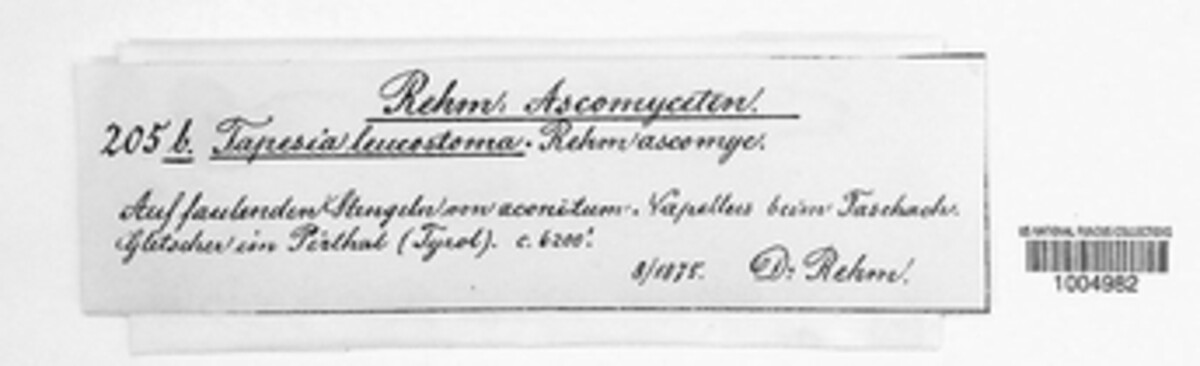 Rehm. Ascomyceten.
205 b. Tapesia leucostoma. Rehm ascomyc.
Auf faulenden Stengeln von aconitum. Napellus beim Taschach.
Gletscher im Pitzthal (Tyrol). c. 6200'.
8/1875. Dr Rehm.
US NATIONAL FUNGUS COLLECTIONS
1004982